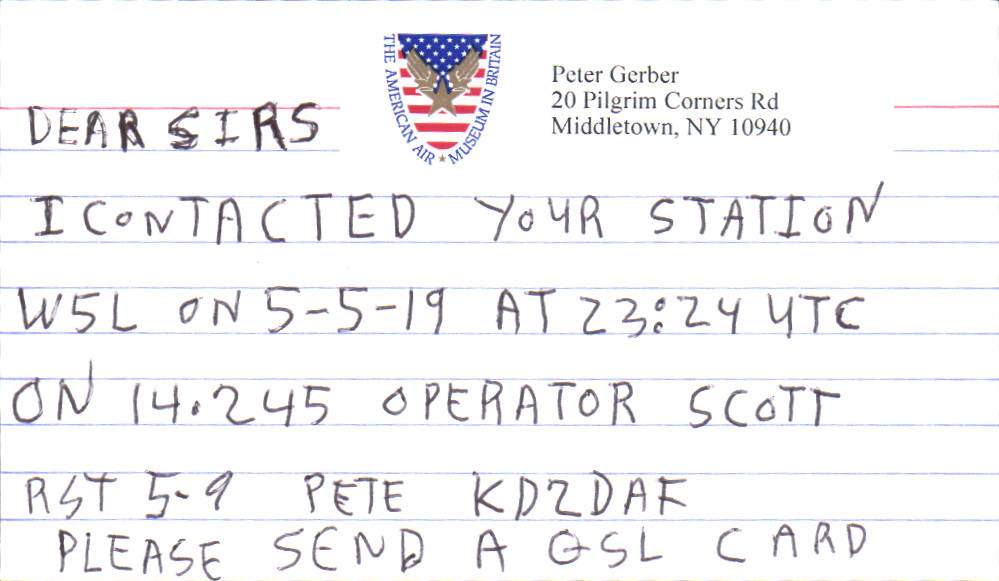 THE AMERICAN AIR ★ MUSEUM IN BRITAIN
Peter Gerber
20 Pilgrim Corners Rd
Middletown, NY 10940
DEAR SIRS
I CONTACTED YOUR STATION
W5L ON 5-5-19 AT 23:24 UTC
ON 14.245 OPERATOR SCOTT
RST 5-9 PETE KD2DAF
PLEASE SEND A QSL CARD